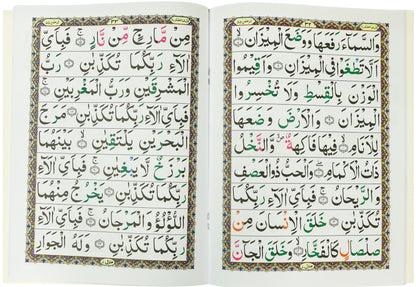 وَالسَّمَآءَ رَفَعَهَا وَوَضَعَ الْمِيْزَانَ ۝
اَلَّا تَطْغَوْا فِى الْمِيْزَانِ ۝ وَاَقِيْمُوا
الْوَزْنَ بِالْقِسْطِ وَلَا تُخْسِرُوا
الْمِيْزَانَ ۝ وَالْاَرْضَ وَضَعَهَا
لِلْاَنَامِ ۝ فِيْهَا فَاكِهَةٌ وَّالنَّخْلُ
ذَاتُ الْاَكْمَامِ ۝ وَالْحَبُّ ذُو الْعَصْفِ
وَالرَّيْحَانُ ۝ فَبِاَىِّ اٰلَآءِ رَبِّكُمَا
تُكَذِّبٰنِ ۝ خَلَقَ الْاِنْسَانَ مِنْ
صَلْصَالٍ كَالْفَخَّارِ ۝ وَخَلَقَ الْجَآنَّ
مِنْ مَّارِجٍ مِّنْ نَّارٍ ۝ فَبِاَىِّ
اٰلَآءِ رَبِّكُمَا تُكَذِّبٰنِ ۝ رَبُّ
الْمَشْرِقَيْنِ وَرَبُّ الْمَغْرِبَيْنِ ۝
فَبِاَىِّ اٰلَآءِ رَبِّكُمَا تُكَذِّبٰنِ ۝ مَرَجَ
الْبَحْرَيْنِ يَلْتَقِيٰنِ ۝ بَيْنَهُمَا
بَرْزَخٌ لَّا يَبْغِيٰنِ ۝ فَبِاَىِّ اٰلَآءِ
رَبِّكُمَا تُكَذِّبٰنِ ۝ يَخْرُجُ مِنْهُمَا
اللُّؤْلُؤُ وَالْمَرْجَانُ ۝ فَبِاَىِّ اٰلَآءِ
رَبِّكُمَا تُكَذِّبٰنِ ۝ وَلَهُ الْجَوَارِ